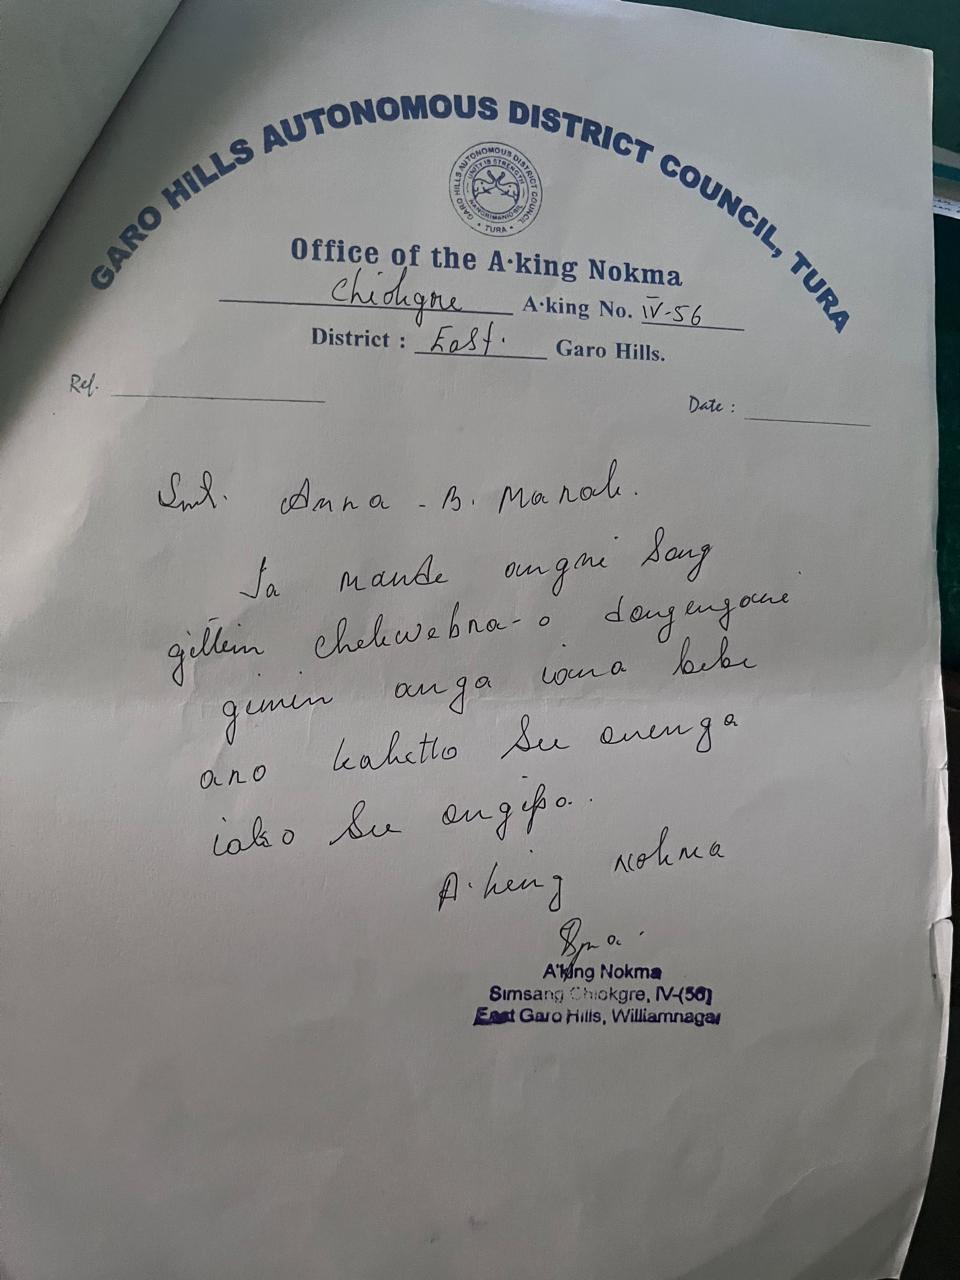 GARO HILLS AUTONOMOUS DISTRICT COUNCIL, TURA
GARO HILLS AUTONOMOUS DISTRICT COUNCIL
UNITY IS STRENGTH
TURA
Office of the A·king Nokma
Chiokgre A·king No. IV-56
District : East. Garo Hills.
Ref.
Date :
Smt. Anna - B. Marak.
Ia mande angni Song
gittim chekwebra-o dongengani
gimin anga iana bebe
ano kaketko su anenga
iako su angipa.
A·king Nokma
A'king Nokma
Simsang Chiokgre, IV-(56)
East Garo Hills, Williamnagar